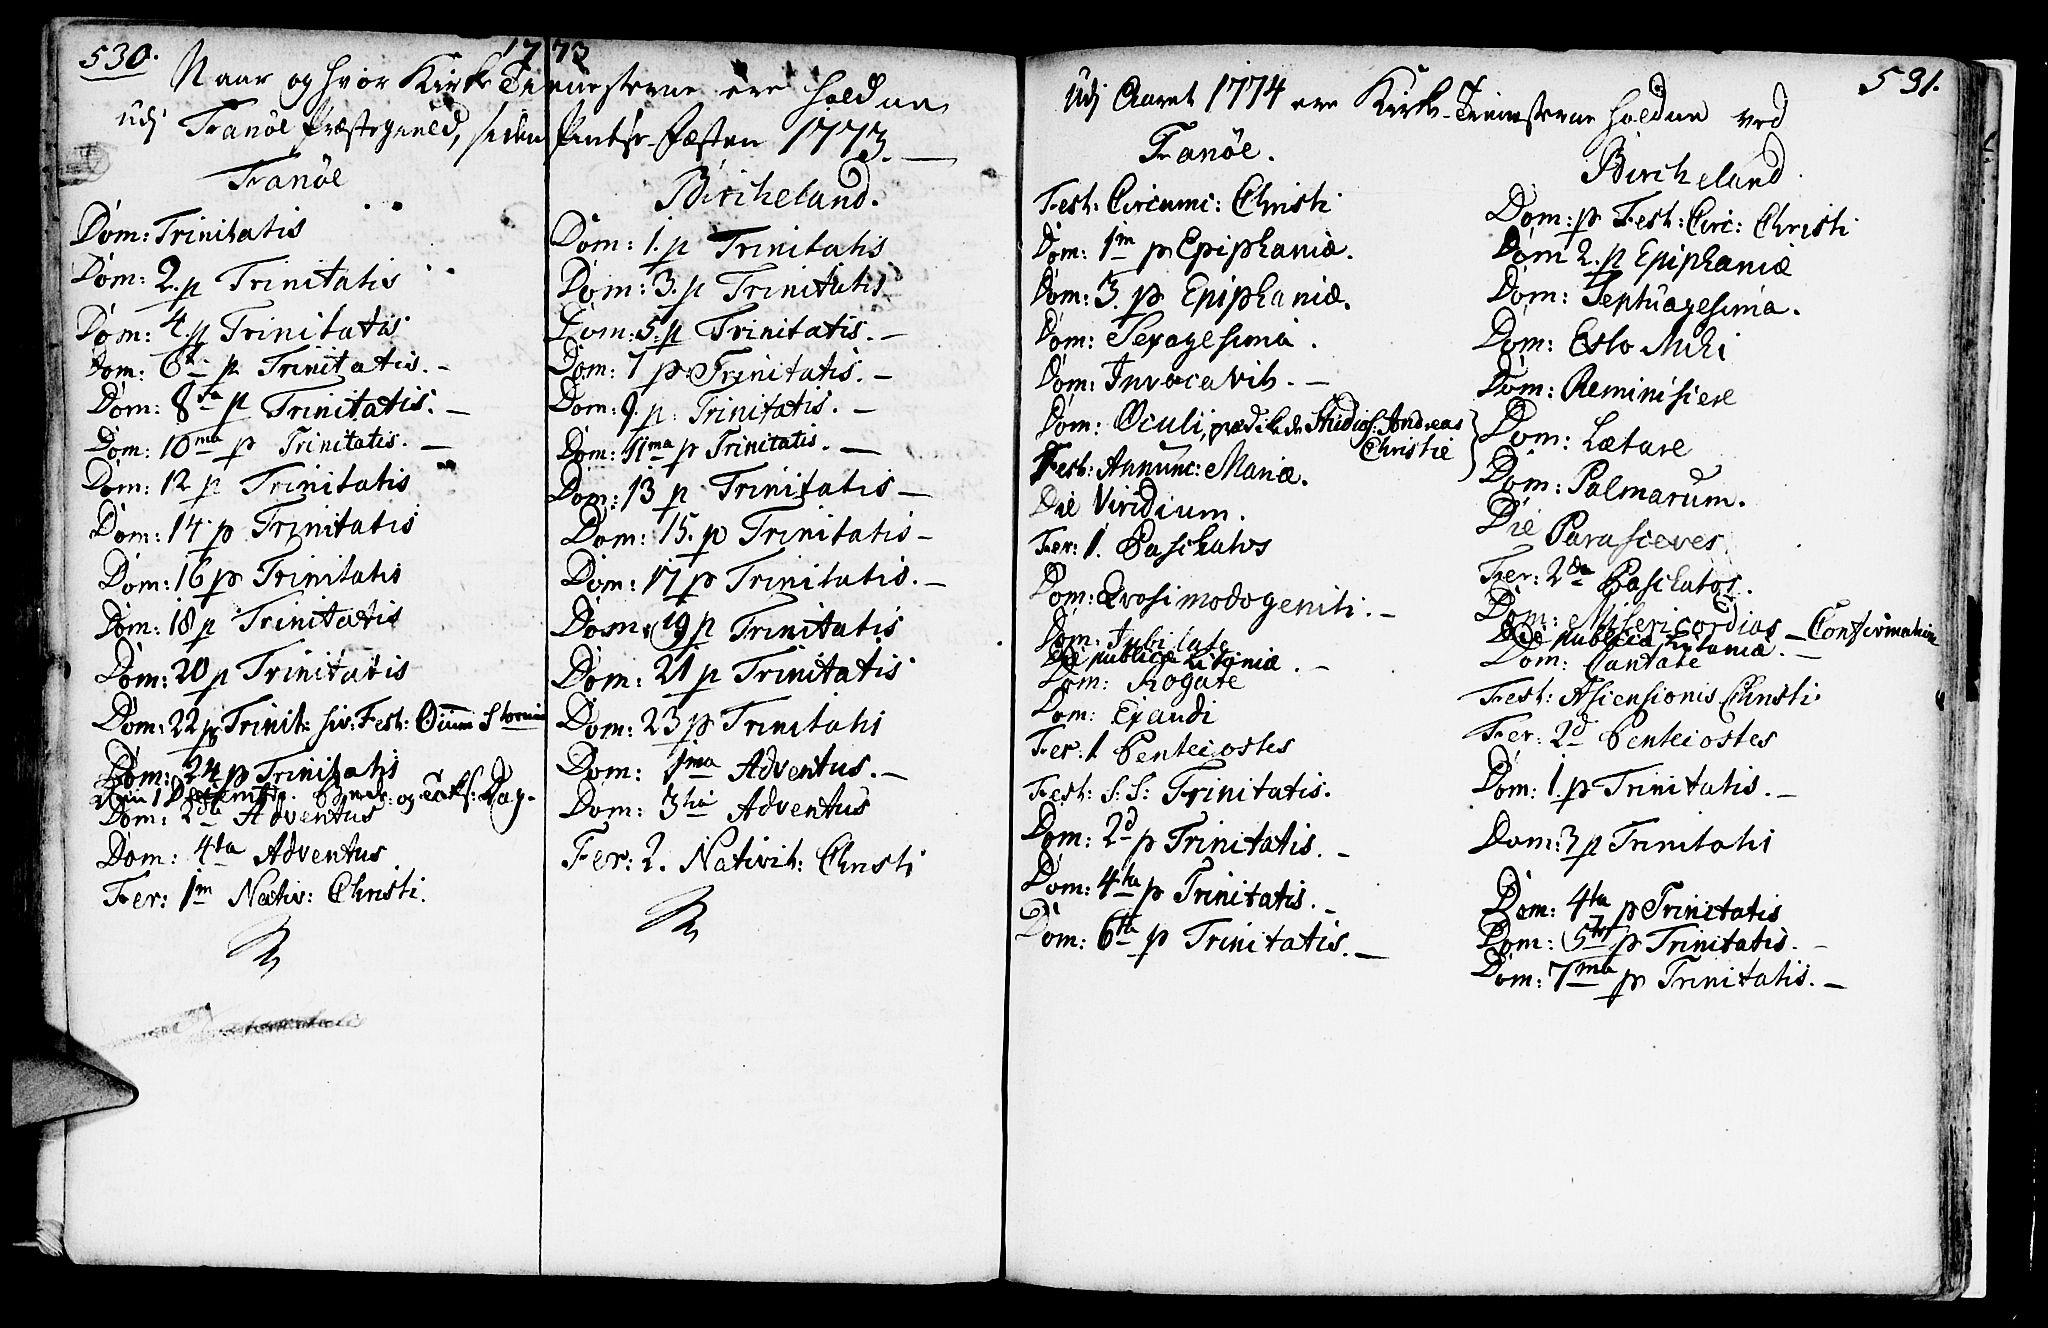 530.
1773
Naar og hvor Kirke Tienesterne ere holdne
udj Tranöe Præstegield, siden Pintse-Fæsten 1773.
Tranöe
Dom: Trinitatis
Dom: 2. p Trinitatis
Dom: 4 p Trinitatis
Dom: 6te p Trinitatis. -
Dom: 8va p Trinitatis. -
Dom: 10ma p Trinitatis. -
Dom: 12 p Trinitatis
Dom: 14 p Trinitatis
Dom: 16 p Trinitatis
Dom: 18 p Trinitatis
Dom: 20 p Trinitatis
Dom: 22 p Trinit: siv: Fest: Oium Storum
Dom: 24 p Trinitatis
Den 1 Decembr. Beede- og Taks: Dag.
Dom: 2da Adventus
Dom: 4ta Adventus
Fer: 1m Nativ: Christi.
Bircheland.
Dom: 1. p Trinitatis
Dom: 3. p Trinitatis
Dom: 5. p Trinitatis. -
Dom: 7 p Trinitatis. -
Dom: 9. p. Trinitatis. -
Dom: 11ma p Trinitatis. -
Dom: 13 p Trinitatis -
Dom: 15. p Trinitatis -
Dom: 17 p Trinitatis. -
Dom: 19 p Trinitatis
Dom: 21 p Trinitatis
Dom: 23 p Trinitatis
Dom: 1ma Adventus. -
Dom: 3tia Adventus
Fer: 2. Nativit: Christi
531.
Udj Aaret 1774 ere Kirke-Tienesterne holdne ved
Tranöe.
Fest: Circumc: Christi
Dom: 1m p Epiphaniæ.
Dom: 3. p Epiphaniæ.
Dom: Sexagesima.
Dom: Invocavit. -
Dom: Oculi, prædikede Studios: Andreas
Christie
Fest: Annunc: Mariæ.
Die Viridium.
Fer: 1. Paschatos
Dom: Qvasimodogeniti. -
Dom: Jubilate
Die publicæ Litaniæ. -
Dom: Rogate
Dom: Exaudi
Fer: 1 Pentecostes
Fest: S: S: Trinitatis.
Dom: 2d p Trinitatis. -
Dom: 4ta p Trinitatis. -
Dom: 6ta p Trinitatis. -
Bircheland.
Dom: p Fest: Circ: Christi
Dom 2. p Epiphaniæ
Dom: Septuagesima.
Dom: Esto Mihi
Dom: Reminiscere
Dom: Lætare
Dom: Palmarum.
Die Parasceves
Fer: 2da Paschatos.
Dom: Misericordias - Confirmation
Die publicæ Litaniæ. -
Dom: Cantate
Fest: Ascensionis Christi
Fer: 2d Pentecostes
Dom: 1. p Trinitatis. -
Dom: 3 p Trinitatis
Dom: 4ta p Trinitatis
Dom: 5ta p Trinitatis. -
Dom: 7ma p Trinitatis. -